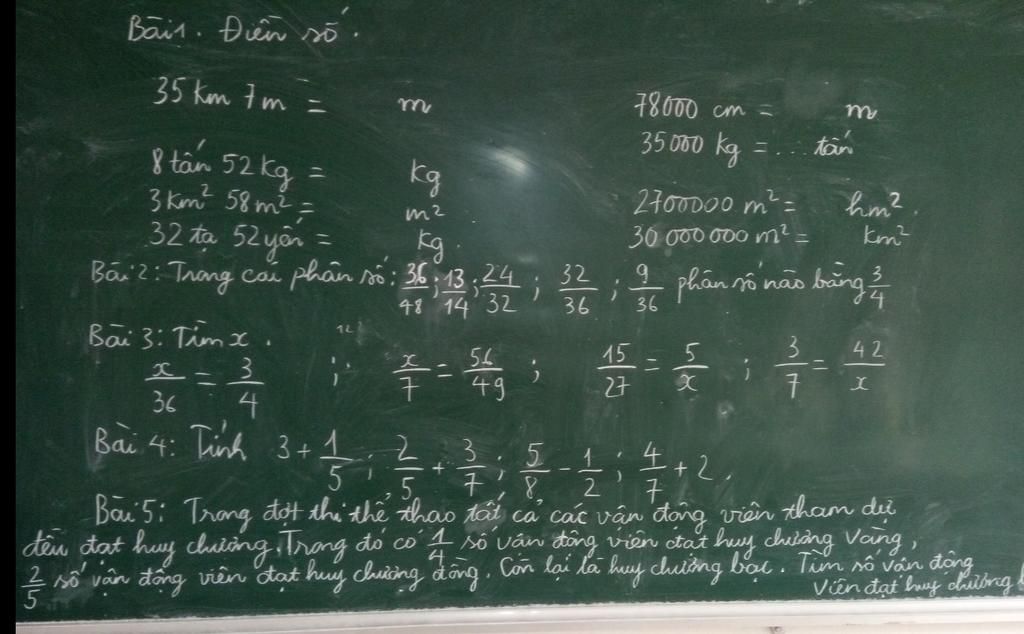 Bài 1. Điền số.
35 km 7m = m 78000 cm = m
35000 kg = ... tấn
8 tấn 52 kg = kg
3 km² 58 m² = m² 2700000 m² = hm².
32 tạ 52 yến = kg. 30 000 000 m² = km²
Bài 2: Trong các phân số: 36/48; 13/14; 24/32; 32/36; 9/36 phân số nào bằng 3/4
Bài 3: Tìm x. 12
x/36 = 3/4 ; x/7 = 56/49 ; 15/27 = 5/x ; 3/7 = 42/x
Bài 4: Tính 3 + 1/5; 2/5 + 3/7; 5/8 - 1/2; 4/7 + 2.
Bài 5: Trong đợt thi thể thao tất cả các vận động viên tham dự
đều đạt huy chương. Trong đó có 1/4 số vận động viên đạt huy chương vàng,
2/5 số vận động viên đạt huy chương đồng. Còn lại là huy chương bạc. Tìm số vận động
viên đạt huy chương